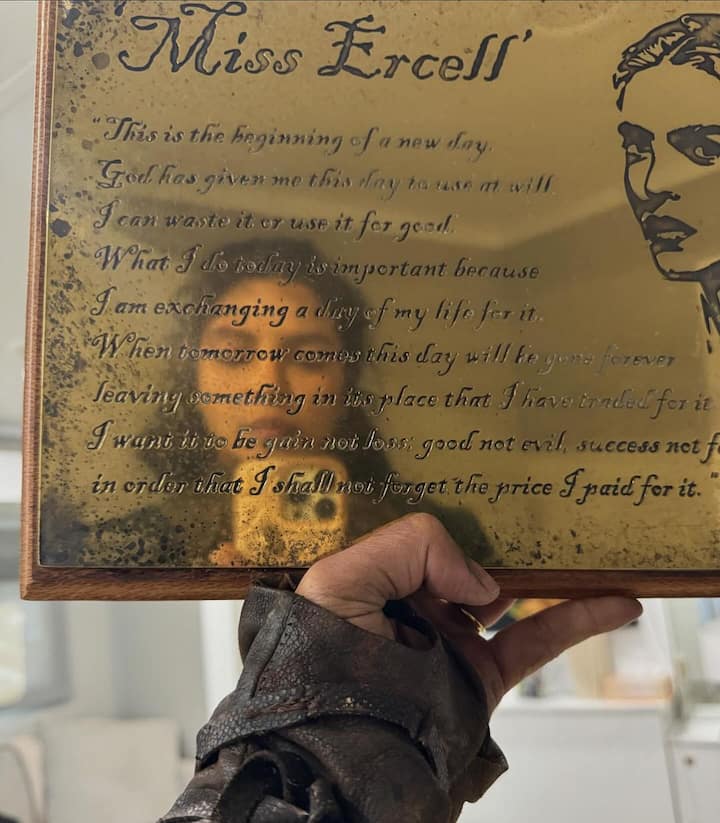 'Miss Ercell'
"This is the beginning of a new day.
God has given me this day to use at will.
I can waste it or use it for good.
What I do today is important because
I am exchanging a day of my life for it.
When tomorrow comes this day will be gone forever
leaving something in its place that I have traded for it
I want it to be gain not loss; good not evil, success not f
in order that I shall not forget the price I paid for it."